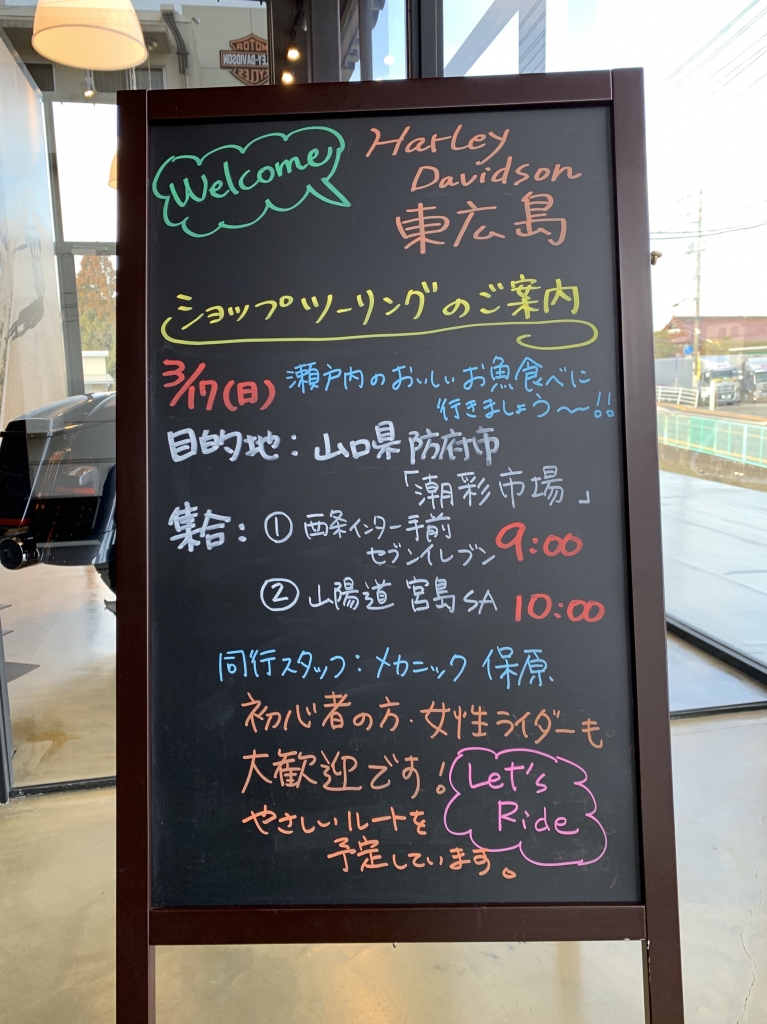 MOTOR
HARLEY-DAVIDSON
CYCLES
Welcome
Harley
Davidson
東広島
ショップツーリングのご案内
3/17(日) 瀬戸内のおいしいお魚食べに
行きましょう〜!!
目的地：山口県 防府市
「潮彩市場」
集合：① 西条インター手前
セブンイレブン 9:00
② 山陽道 宮島SA 10:00
同行スタッフ：メカニック 保原
初心者の方・女性ライダーも
大歓迎です！
Let's
Ride
やさしいルートを
予定しています。